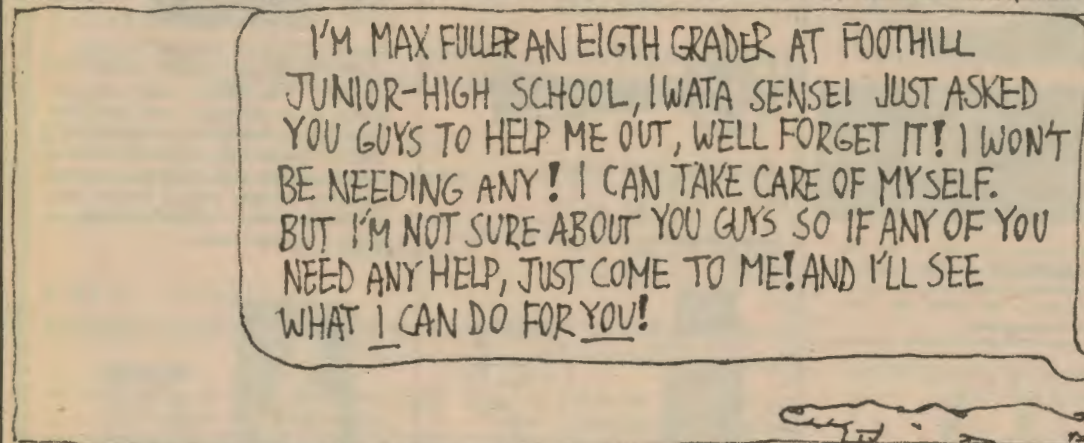 I'M MAX FULLER AN EIGTH GRADER AT FOOTHILL
JUNIOR-HIGH SCHOOL, IWATA SENSEI JUST ASKED
YOU GUYS TO HELP ME OUT, WELL FORGET IT! I WON'T
BE NEEDING ANY! I CAN TAKE CARE OF MYSELF.
BUT I'M NOT SURE ABOUT YOU GUYS SO IF ANY OF YOU
NEED ANY HELP, JUST COME TO ME! AND I'LL SEE
WHAT I CAN DO FOR YOU!